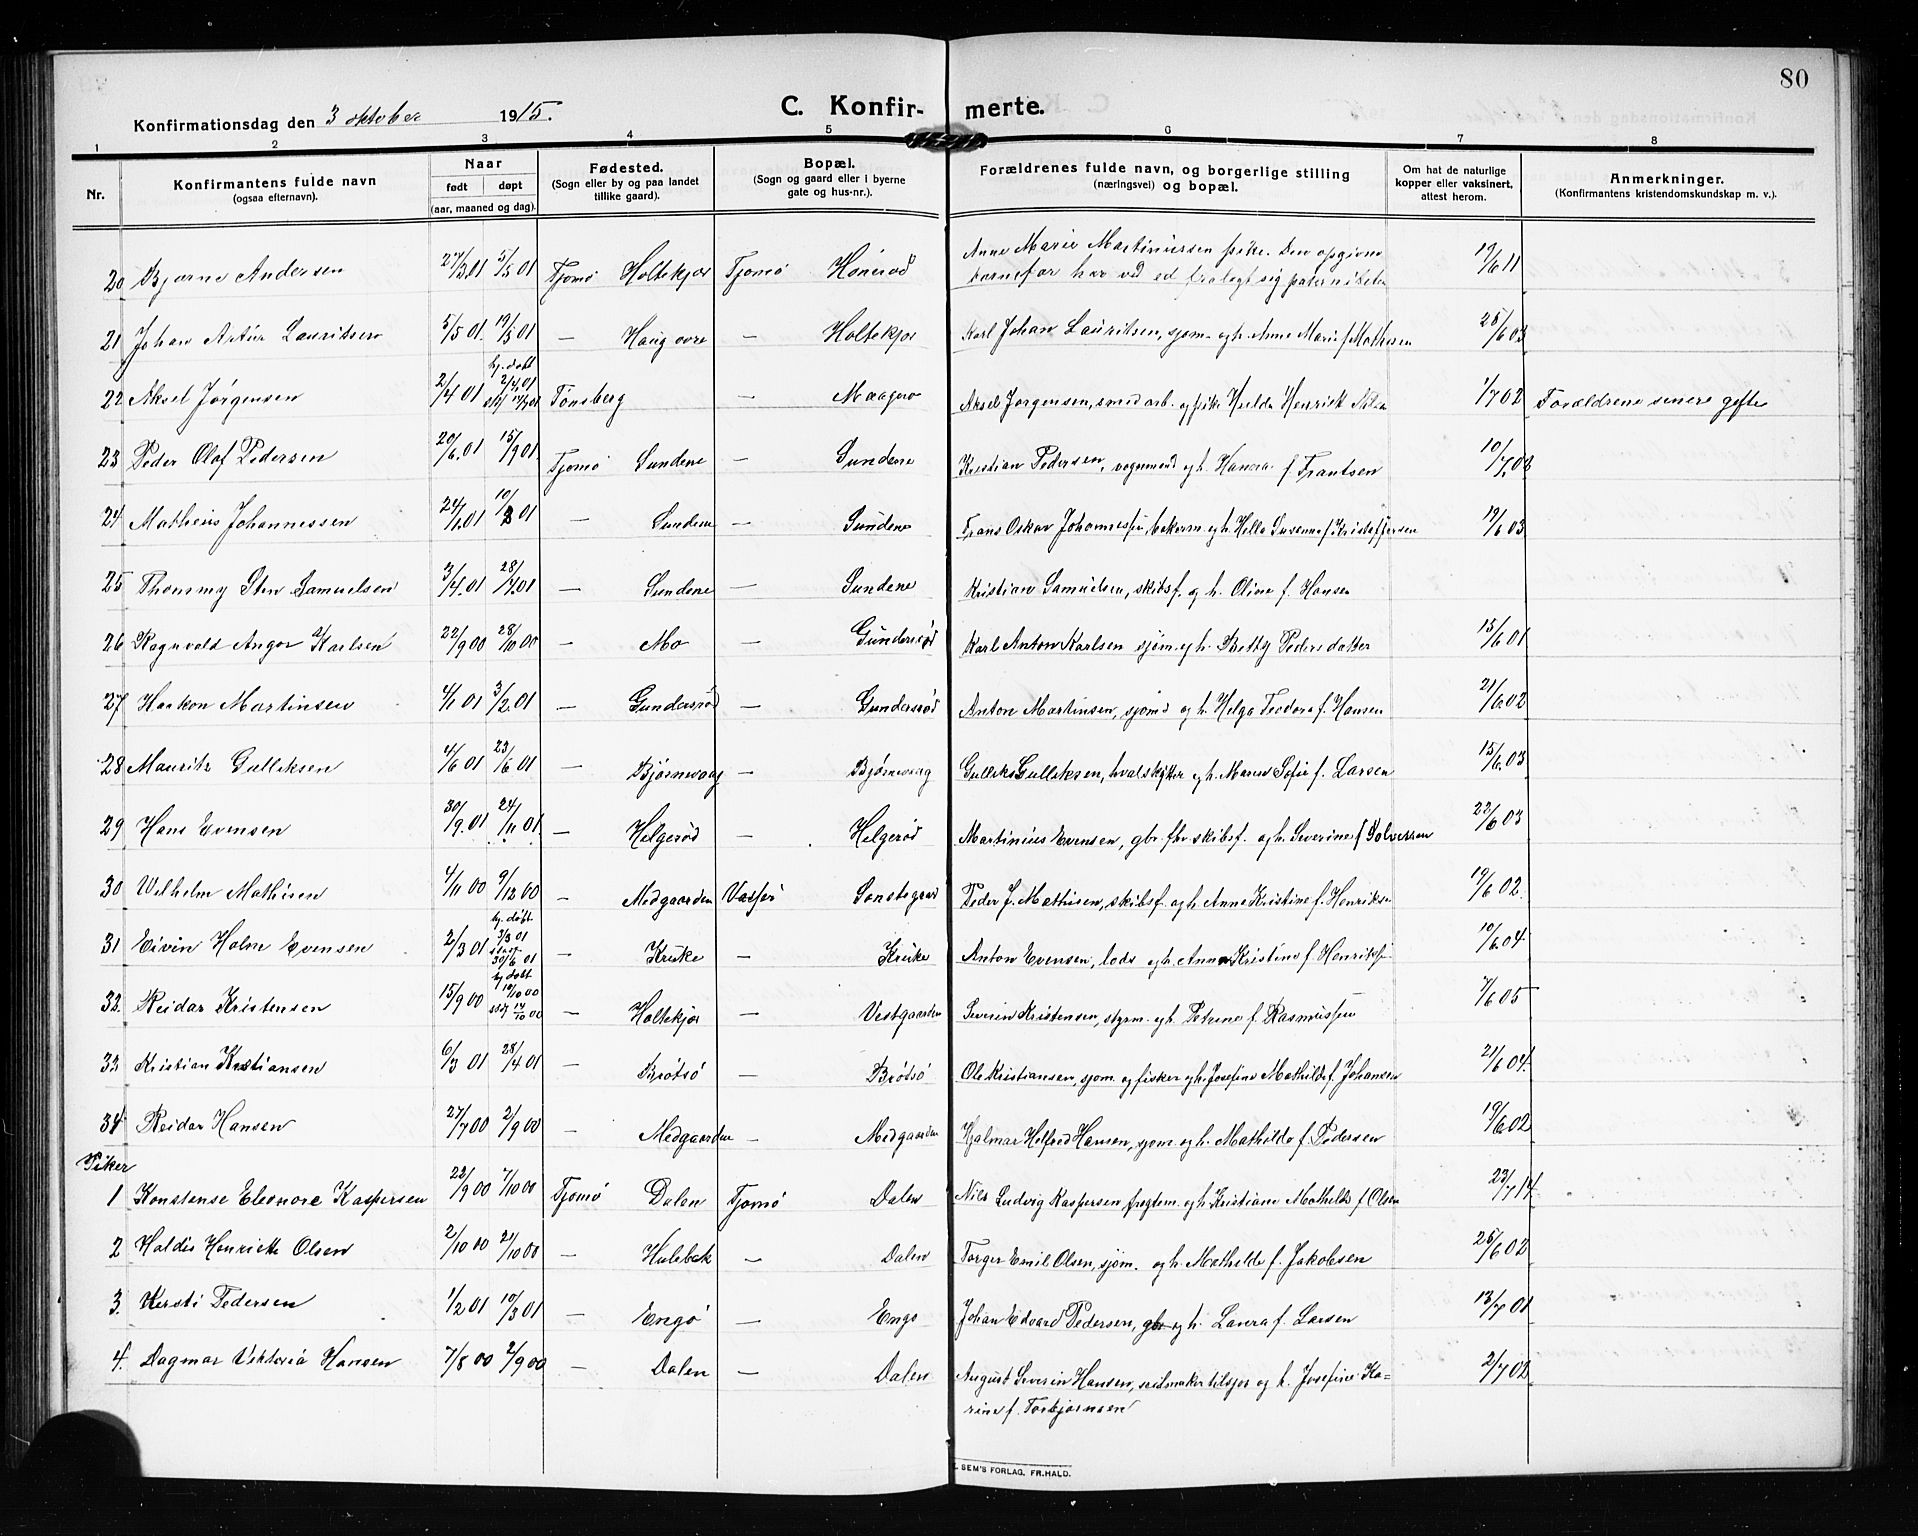 80
C. Konfir- merte.
Konfirmationsdag den 3 oktober 1915.
1 2 3 4 5 6 7 8
Nr. Konfirmantens fulde navn (ogsaa efternavn). Naar født døpt (aar, maaned og dag). Fødested. (Sogn eller by og paa landet tillike gaard). Bopæl. (Sogn og gaard eller i byerne gate og hus-nr.). Forældrenes fulde navn, og borgerlige stilling (næringsvei) og bopæl. Om hat de naturlige kopper eller vaksinert, attest herom. Anmerkninger. (Konfirmantens kristendomskundskap m. v.).
20 Bjarne Andersen 27/3 01 5/5 01 Tjømø Holtekjær Tjømø Hønerød Anne Marie Martinussen pike. Den opgivne
barnefar har ved ed fralagt sig paterniteten 19/6 11
21 Johan Artur Lauritsen 5/5 01. 19/5 01 — Haug øvre — Holtekjær Karl Johan Lauritsen, sjøm. og h. Anne Marie f Mathisen 25/6 03
22 Aksel Jørgensen 2/4 01 hj. døbt 2/4 01 Tønsberg — Maagerø Aksel Jørgensen, smedarb. og pike Hulda Henrick 1/7 02 Forældrene senere gifte
23 Peder Olaf Pedersen 20/6.01 15/9 01 Tjømø Sundene Sundene Kristian Pedersen, vognmand og h. Hanna f. Frantsen 10/7 02
24 Matheus Johannessen 24/1.01 10/3 01 — Sundene — Sundene Frans Oskar Johannessen, bekerm. og h. Helle Susanne f Kristoffersen 19/6 03
25 Thommy Sten Samuelsen 3/4.01 28/4.01 — Sundene — Sundene Kristian Samuelsen, skibsf. og h. Oline f. Hansen
26 Ragnvald Angor Karlsen 22/9 00 28/10 00 — Mo — Gundersrød Karl Anton Karlsen sjøm. og h. Betty Pedersdatter 15/6 01
27 Haakon Martinsen 4/1 01 3/2.01 — Gundersrød — Gundersrød Anton Martinsen, sjømd og h. Helga Teodora f. Hansen 21/6 02
28 Mauritz Gulliksen 4/6 01 23/6 01 — Bjørnevaag — Bjørnevaag Gullik Gulliksen, hvalskytter og h. Maren Sofie f. Larsen 15/6.03
29 Hans Evensen 30/9.01 24/11 01. — Helgerød — Helgerød Martinius Evensen, gbr. fhv skibsf. og h. Severine f 22/6 03
30 Wilhelm Mathisen 4/11 00 9/12 00 — Medgaarden Vasser Sønstegaard Peder J. Mathisen, skibsf. og h. Anne Kristine f. Henriksen 19/6 02.
31 Eivin Holm Evensen 2/3 01 hj. døbt 3/3 01 stadf. 30/6 01 — Kruke — Kruke Anton Evensen, lods og h. Anne Kristine f. Henriksen 10/6 04
32. Reidar Kristensen 15/9 00 hj. døbt 10/10 00 stdf 14/10 00 — Holtekjær — Vestgaarden Severin Kristensen, styrm. og h. Petrine f. Rasmussen 7/6 05
33 Kristian Kristiansen 6/3 01 28/4 01 — Brøtsø — Brøtsø Ole Kristiansen, sjøm. og fisker og h. Josefine Mathilde f. Johansen 21/6 04
34 Reidar Hansen 27/7 00 2/9 00 — Medgaarden — Medgaarden Hjalmar Helfred Hansen, sjøm. og h. Mathilde f. Pedersen 19/6 02
Piker
1 Konstense Eleonore Kaspersen 22/9 00 7/10 00 Tjømø Dalen Tjømø Dalen Nils Ludvig Kaspersen fragtem. og h. Kristiane Mathilde f Olsen 23/7 14
2 Haldis Henriette Olsen 2/10 00 21/10 00 — Hulebak — Dalen Torger Emil Olsen, sjøm. og h. Mathilde f. Jakobsen 25/6 02
3. Kersti Pedersen 1/2 01 10/3 01 — Engø — Engø Johan Edvard Pedersen, gbr og h. Laura f. Larsen 13/7 01
4. Dagmar Viktoria Hansen 7/8 00 2/9 00 — Dalen — Dalen August Severin Hansen, seilmaker tilsjøs og h. Josefine Ka-
rine f. Torbjørnsen 2/7 02
SEM'S FORLAG, FR.HALD.